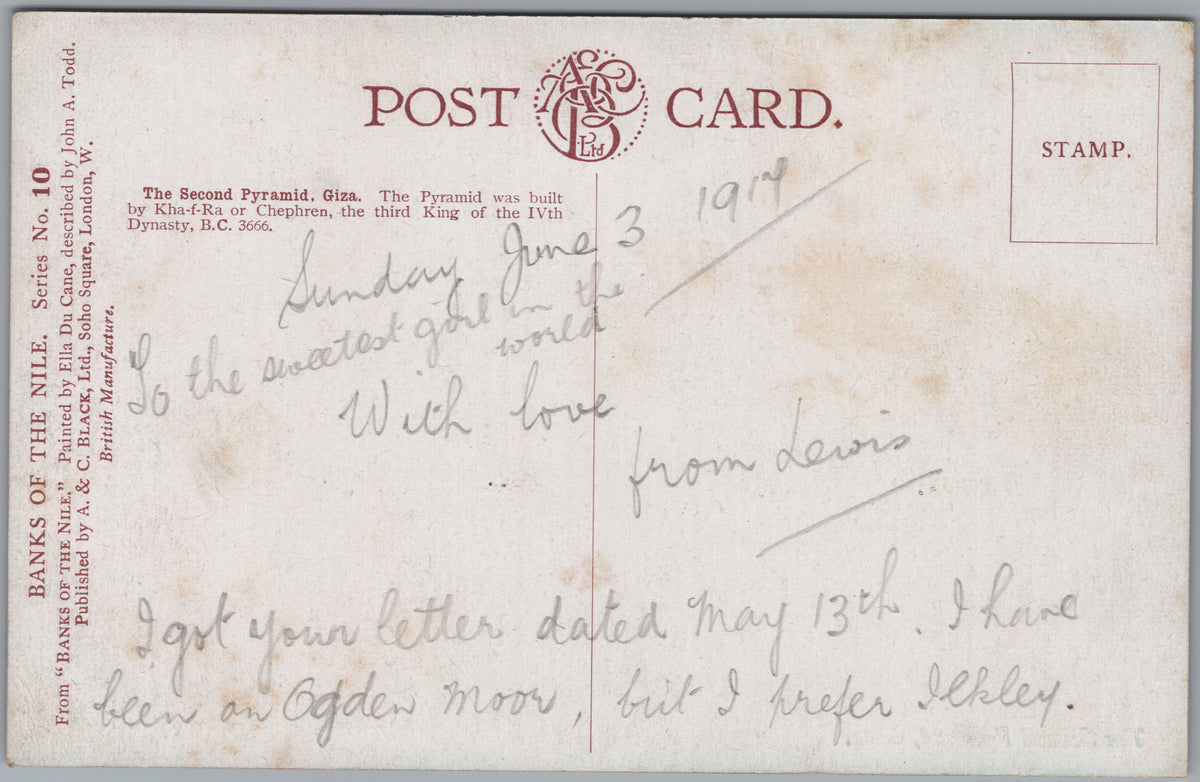 POST CARD.
A&CB Ltd
STAMP.
The Second Pyramid, Giza. The Pyramid was built
by Kha-f-Ra or Chephren, the third King of the IVth
Dynasty, B.C. 3666.
BANKS OF THE NILE. Series No. 10
From "BANKS OF THE NILE," Painted by Ella Du Cane, described by John A. Todd.
Published by A. & C. BLACK, Ltd., Soho Square, London, W.
British Manufacture.
Sunday June 3 1917
To the sweetest girl in the
world
With love
from Lewis
I got your letter dated May 13th. I have
been on Ogden Moor, but I prefer Ilkley.